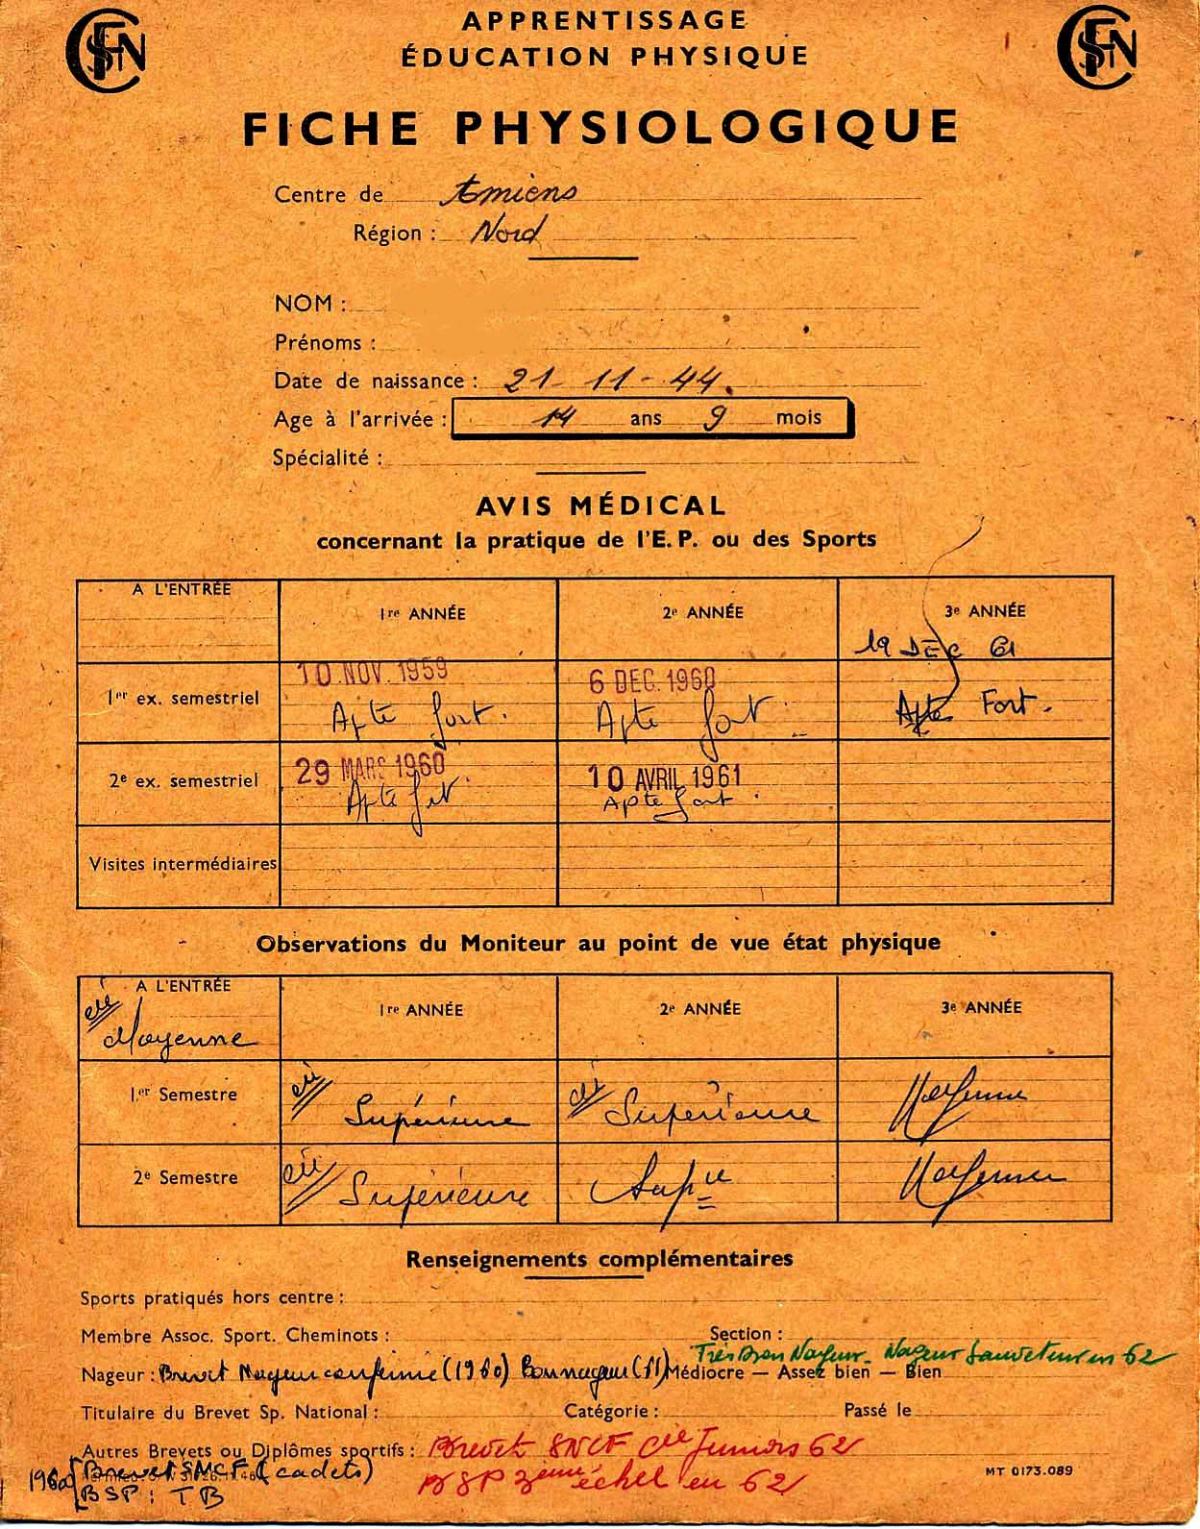 SNCF APPRENTISSAGE SNCF
ÉDUCATION PHYSIQUE
FICHE PHYSIOLOGIQUE
Centre de Amiens
Région : Nord
NOM :
Prénoms :
Date de naissance : 21-11-44.
Age à l'arrivée : 14 ans 9 mois
Spécialité :
AVIS MÉDICAL
concernant la pratique de l'E. P. ou des Sports
A L'ENTRÉE 1re ANNÉE 2e ANNÉE 3e ANNÉE
19 DEC 61
10 NOV. 1959 6 DEC. 1960
1er ex. semestriel Apte fort. Apte fort. Apte Fort.
29 MARS 1960 10 AVRIL 1961
2e ex. semestriel Apte fort. Apte fort.
Visites intermédiaires
Observations du Moniteur au point de vue état physique
A L'ENTRÉE 1re ANNÉE 2e ANNÉE 3e ANNÉE
Moyenne
1er Semestre Supérieure Supérieure Moyenne
2e Semestre Supérieure Supre Moyenne
Renseignements complémentaires
Sports pratiqués hors centre :
Membre Assoc. Sport. Cheminots : Section :
Très Bon Nageur - Nageur Sauveteur en 62
Nageur : Brevet Nageur confirmé (1960) Bon nageur (51) Médiocre — Assez bien — Bien
Titulaire du Brevet Sp. National : Catégorie : Passé le
Autres Brevets ou Diplômes sportifs : Brevet SNCF Cie Juniors 62
1960 Brevet SNCF (cadets)
BSP : TB
BSP 3ème échel en 62
MT 0173.089